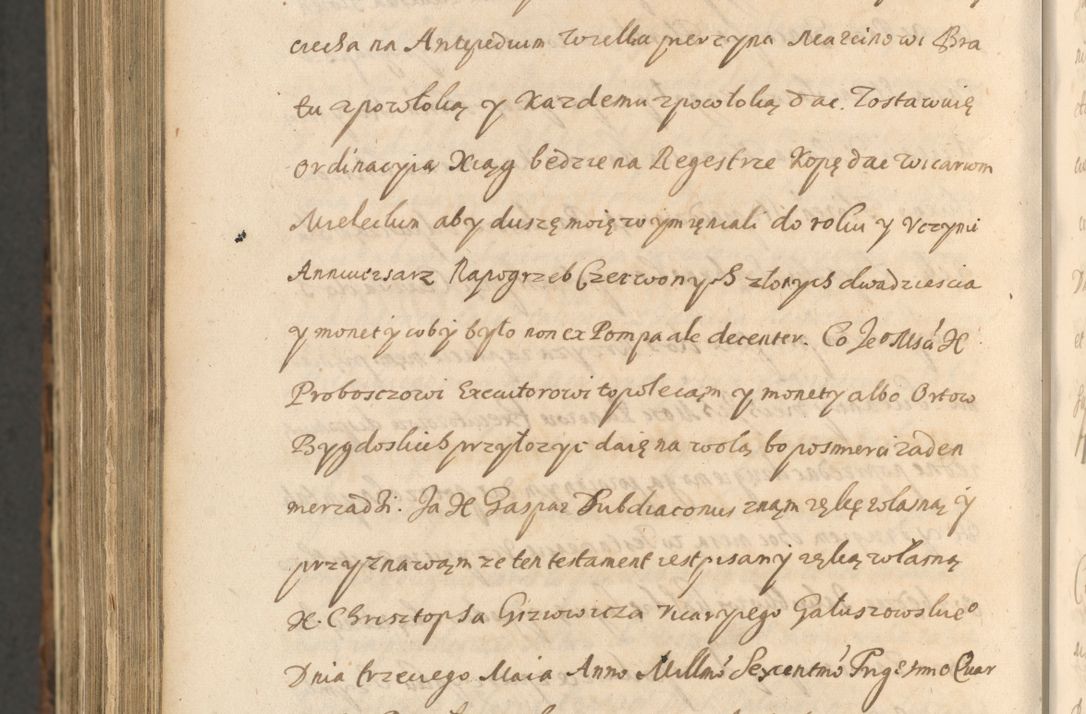 ciecha na Antepedium wielka pierzyna Marcinowi Bra
tu zpowłoką y Kazdemu zpowłoką dac. Zostawuię
Ordinacyią Xiąg będzie na Regestrze Kopę dac Wicariom
Mieleckim aby duszę moię wymięniali do roku y Uczynic
Anniuersarz Napogrzeb Czerwonych złotych dwadziescia
y monety coby było non ex Pompa ale decenter. Co Jeo Msci X
Proboszczowi Executorowi to polecąm y monety albo Ortow
Bygdoskich przyłozyc daię na wolą bo posmierci zaden
nierządzi. Ja X Gaspar Subdiaconus znąm ręką własną y
przyznawąm ze ten testament iest pisany ręką własną
X. Chrisztopha Giziowicza Vicaryiego Gałuszowskieo
Dnia trzeciego Maia Anno Millmo Sexcentmo Trigesimo Quar